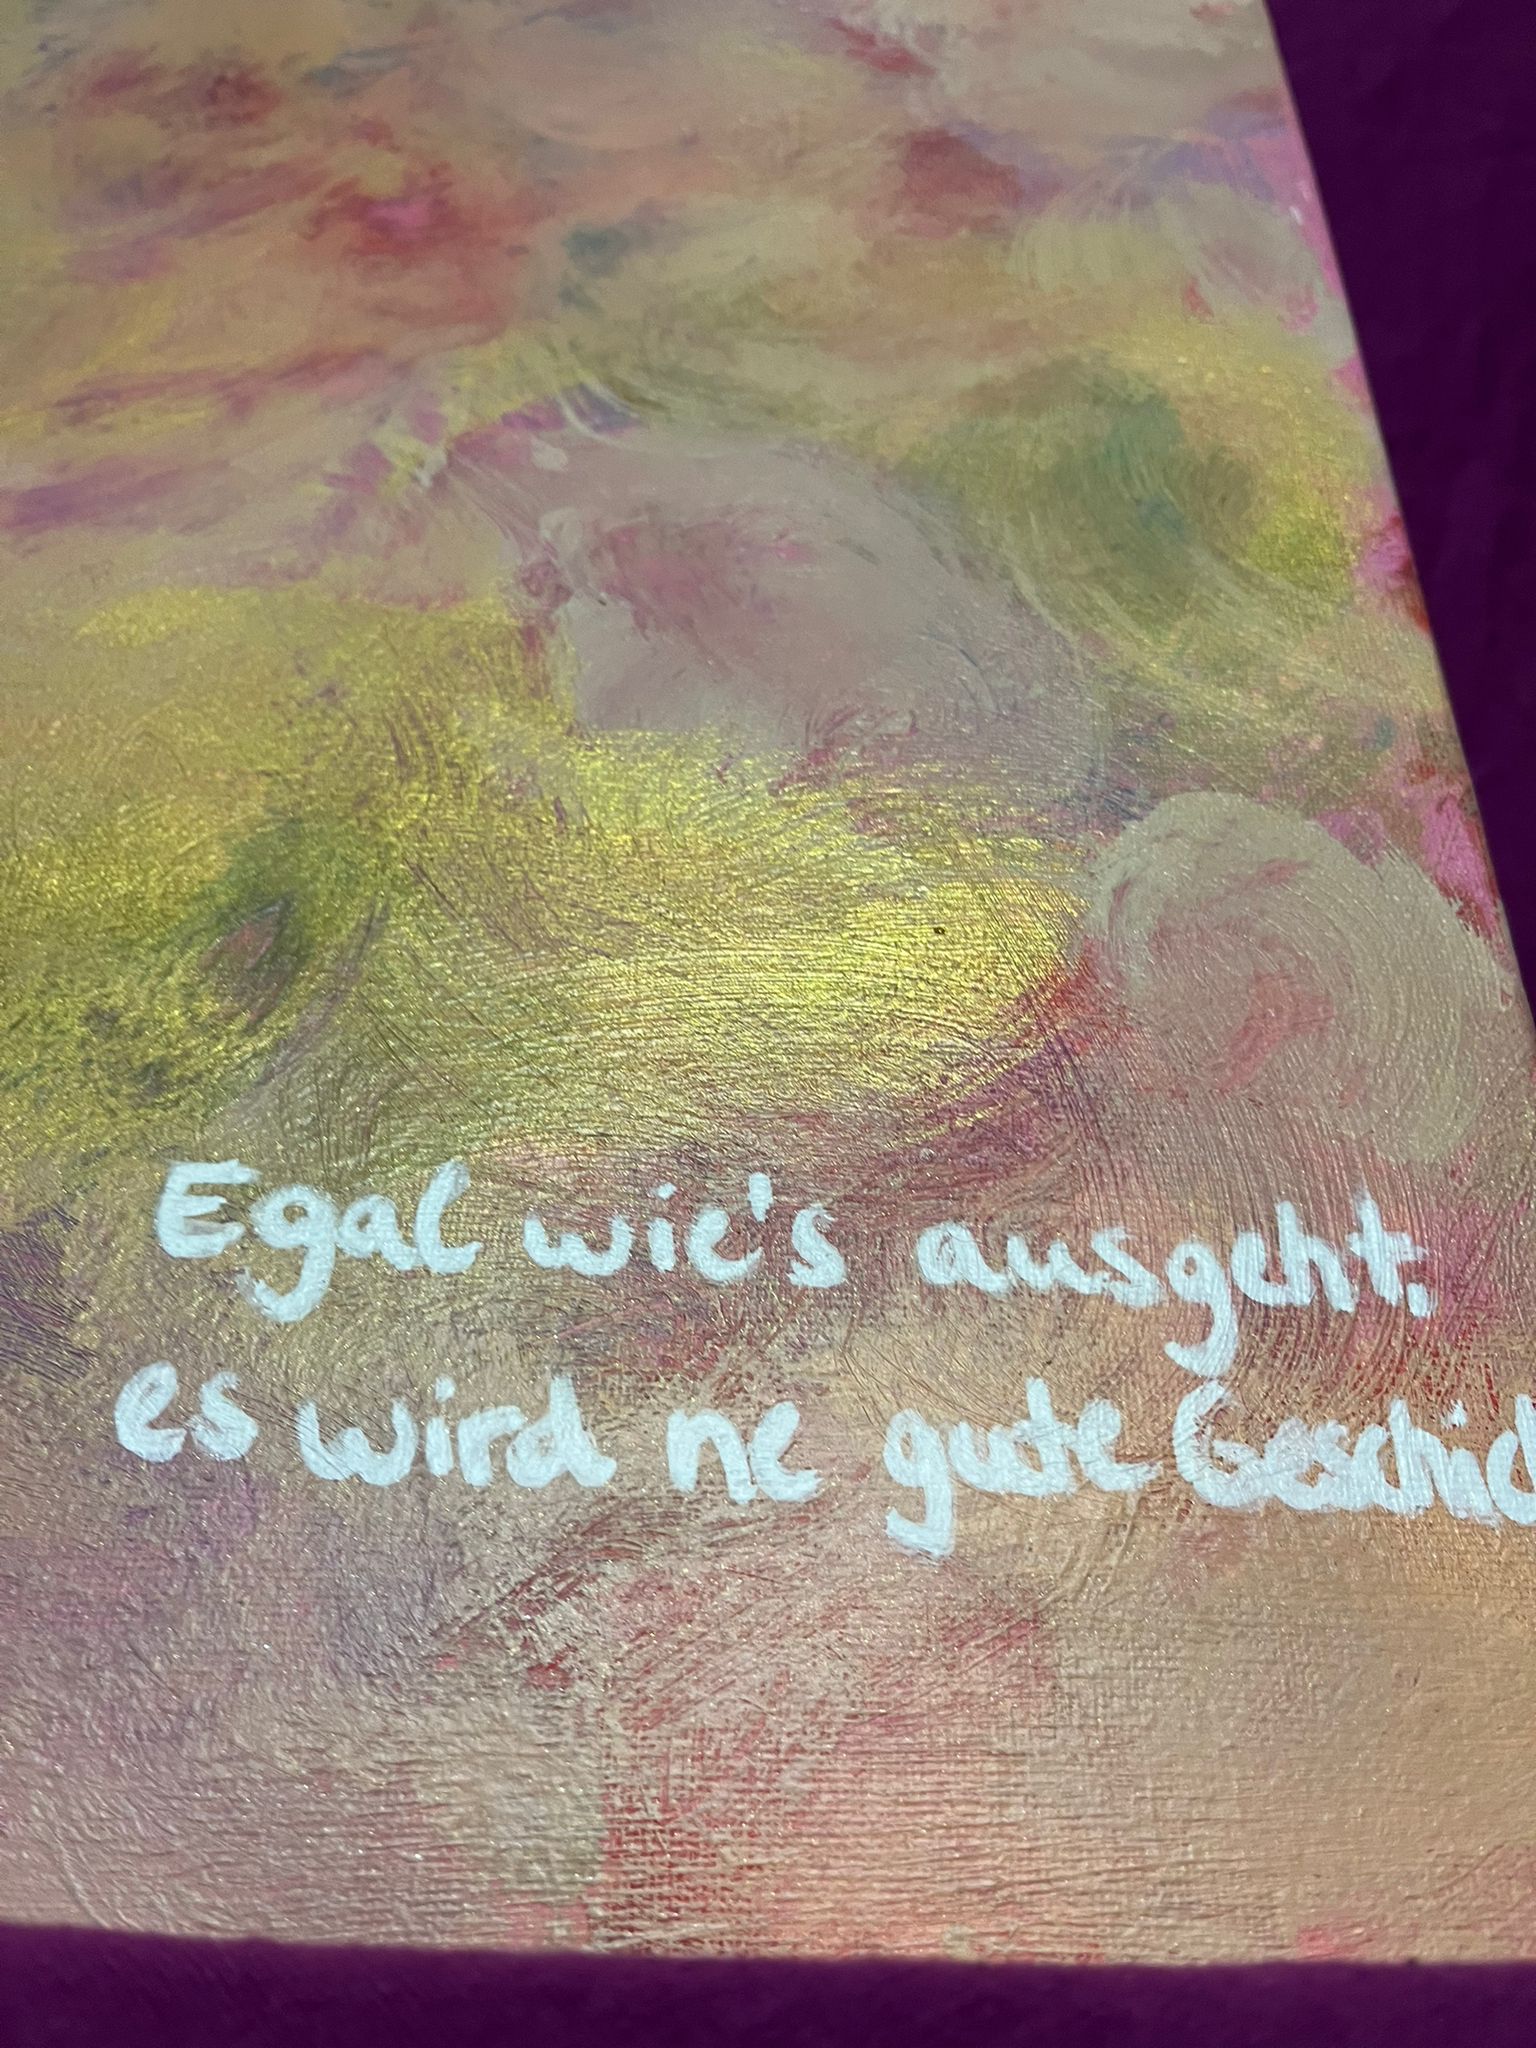 Egal wie's ausgeht.
es wird ne gute Geschic